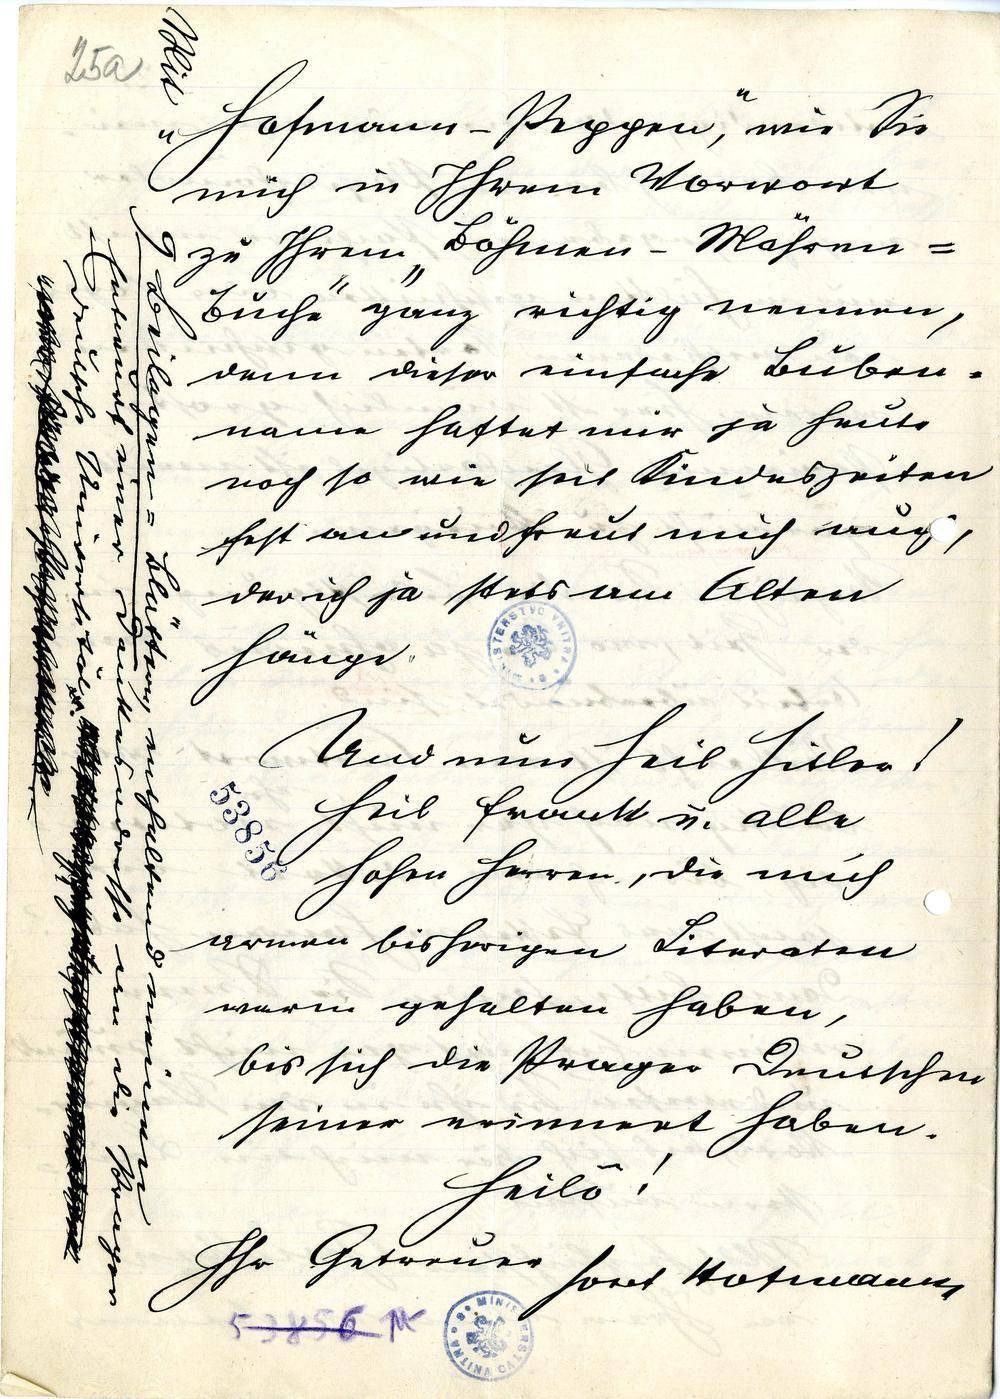 25a
„Hofmann-Peppen“, wie Sie
mich in Ihrem Vorwort
zu Ihrem „Böhmen-Mähren=
Buche“ ganz richtig nennen,
denn dieser einfache Buben=
name haftet mir ja heute
noch so wie seit Kindeszeiten
fest an und freut mich auch,
der ich ja stets am Alten
hänge.
Und nun Heil Hitler!
Heil Frank u. alle
hohen Herren, die mich
armen bisherigen Literaten
warm gehalten haben,
bis sich die Prager Deutschen
seiner erinnert haben.
Heilò!
Ihr Getreuer
Hofmann
53856
53856
MINISTERSTVO VNITRA * 8 *
MINISTERSTVO VNITRA * 8 *
Mit
9 Beilagen=Blättern, enthaltend meinen
Entwurf einer Dankadresse an die Prager
deutsche Universität